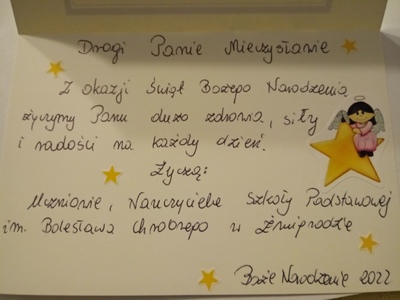 Drogi Panie Mieczysławie
Z okazji Świąt Bożego Narodzenia
życzymy Panu dużo zdrowia, siły
i radości na każdy dzień.
Życzą:
Uczniowie, Nauczyciele Szkoły Podstawowej
im. Bolesława Chrobrego w Żmigrodzie
Boże Narodzenie 2022